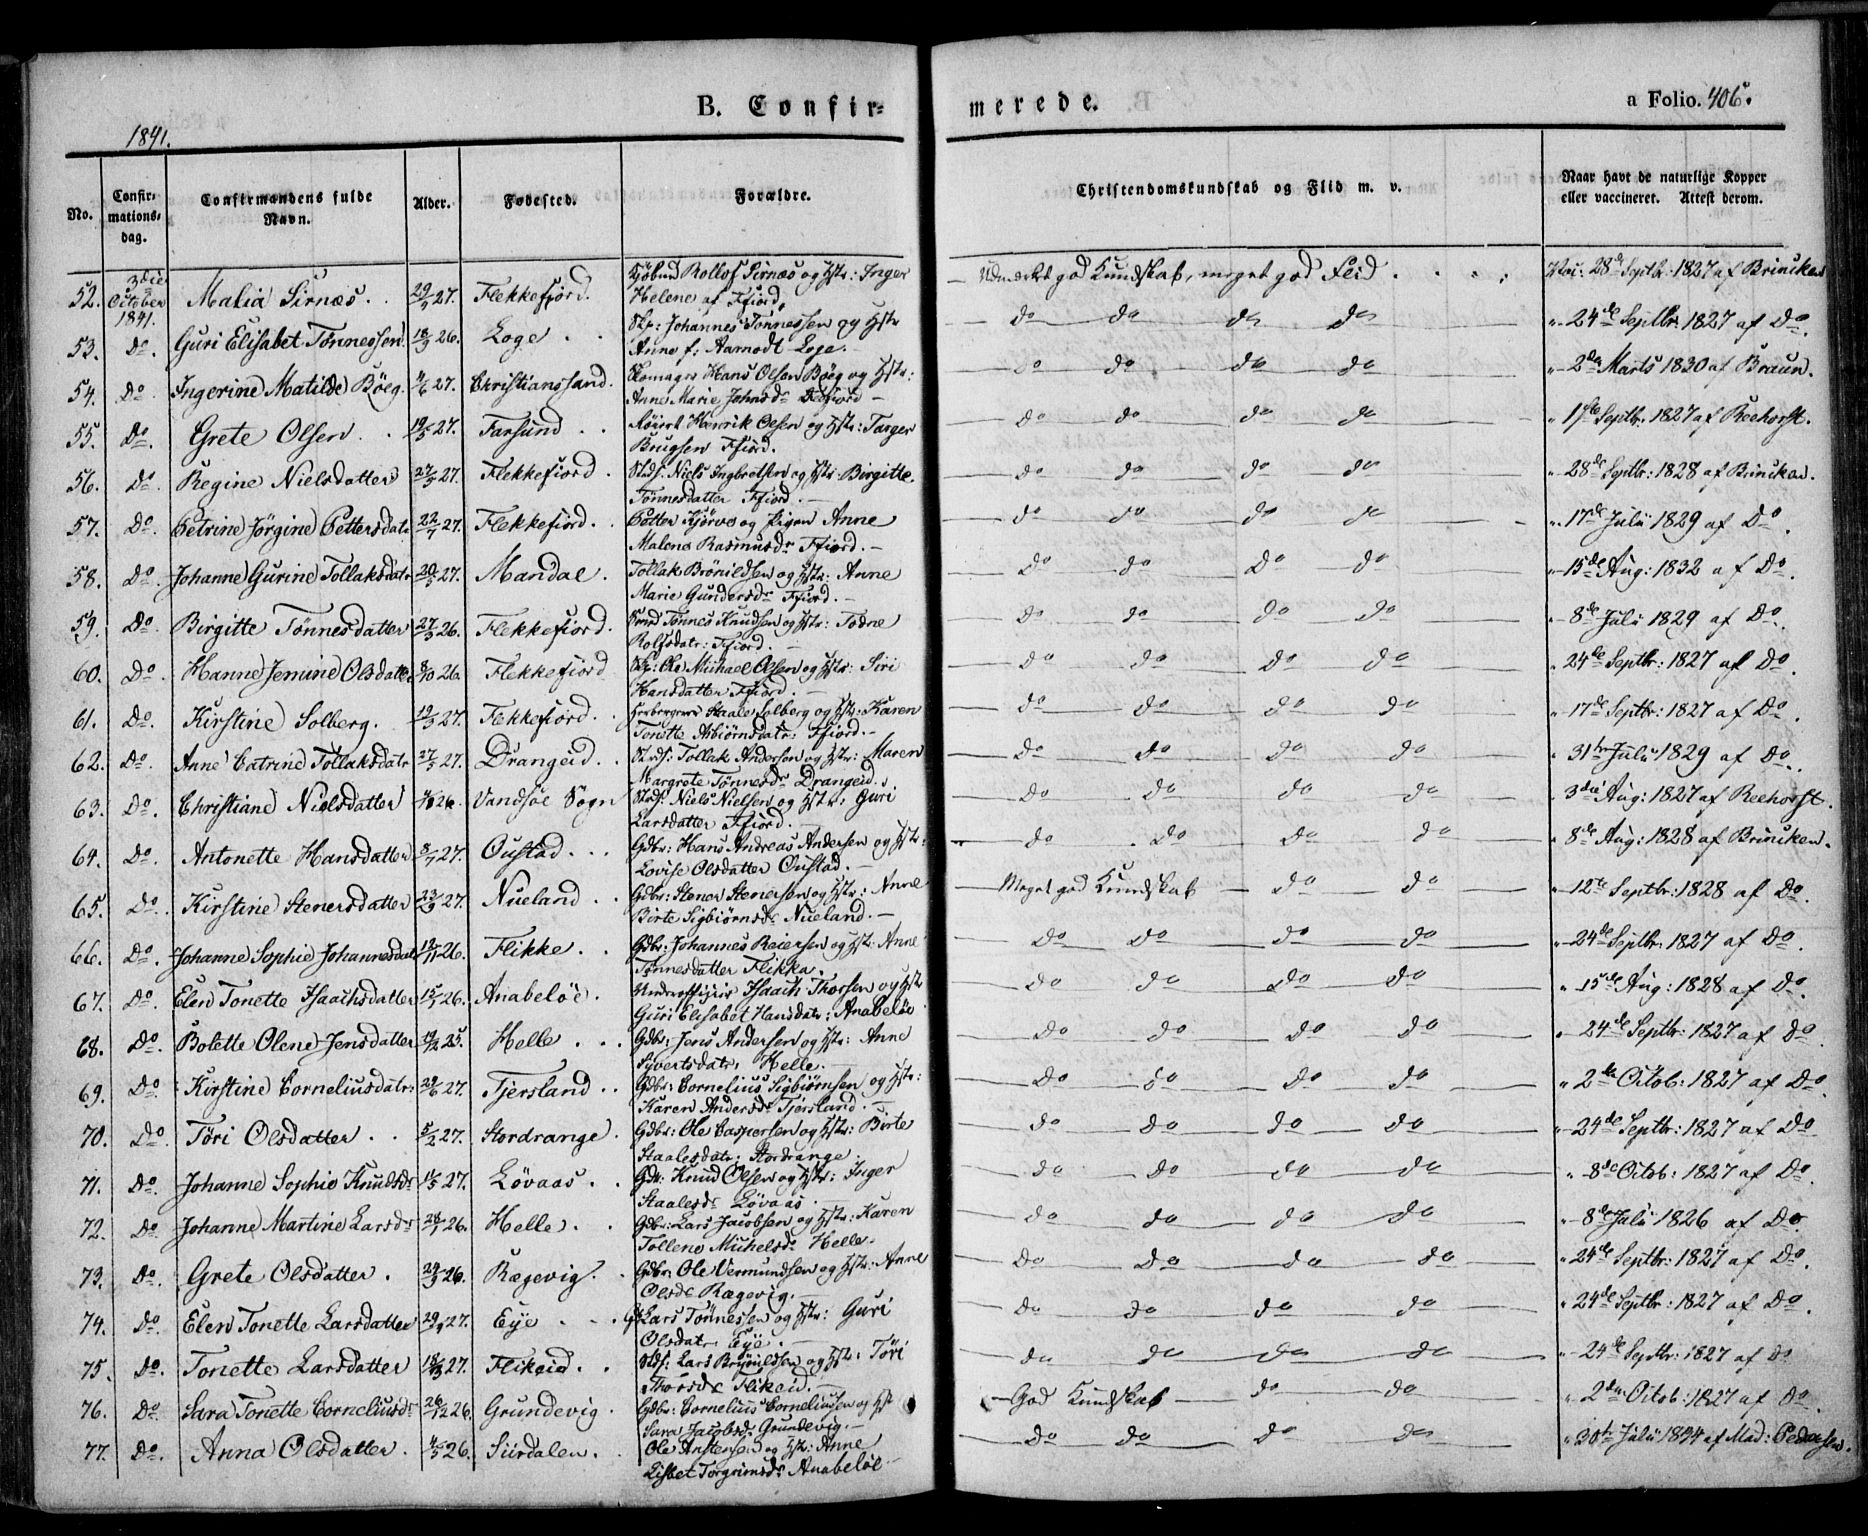 B. Confir=
merede.
a Folio. 406.
1841.
No.
Confir-
mations-
dag.
Confirmandens fulde
Navn.
Alder.
Fødested.
Forældre.
Christendomskundskab og Flid m. v.
Naar havt de naturlige Kopper
eller vaccineret. Attest derom.
52. 3die October 1841. Malia Sirnæs. 27. Flekkefjord. Rollof Sirnæs og Hstr: Inger
Helene af Ffiord. Udmærket god Kundskab, meget god Flid. 28de Septbr: 1827 af Brincken
53. Do. Guri Elisabet Tønnessen 18/3 26. Loge Skp: Johannes Tønnessen og Hstr
Anne f: Aarnodt Loge. do do do do 24de Septbr: 1827 af Do.
54. Do Ingerine Matilde Bøeg 27. Christianssand. Skomager Hans Olsen Bøeg og Hstr:
Anne Marie Johnsdr Ffiord do do do do 2den Marts 1830 af Braun.
55. Do. Grete Olsen 19/5 27. Farsund Henrik Olsen og Hstr: Targer
Brugsen Ffiord. do do do do 17de Septbr. 1827 af Reehorst.
56. Do. Regine Nielsdatter 27/5 27. Flekkefiord Stds: Niels Ingbretsen og Hstr: Birgitte
Tønnesdatter Ffiord. do do do do 28de Septbr: 1828 af Brincken.
57. Do. Petrine Jørgine Pettersdatr 22/7 27. Flekkefiord. Petter Kjørvo og Pigen Anne
Malene Rasmusdr Ffiord. do do do do 17de Julii 1829 af Do.
58. Do Johanne Gurine Tollaksdatr 20/5 27. Mandal. Tollak Brønildsen og Hstr: Anne
Marie Gundersdr Ffiord. do do do do 15de Aug: 1832 af Do.
59. Do Birgitte Tønnesdatter 27/3 26. Flekkefiord. Tønnes Knudsen og Hstr: Todne
Rolfsdatr: Ffiord. do do do do 8de Julii 1829 af Do.
60. Do. Hanne Jemine Olsdatter 8/10 26. Flekkefiord Skp: Ole Michael Olsen og Hstr: Siri
Hansdatter Ffiord. do do do do 24de Septbr: 1827 af Do
61. Do. Kirstine Solberg. 19/3 27. Flekkefiord. Staale Solberg og Hstr: Karen
Tonette Asbiørnsdatr: Ffiord. do do do do 17de Septbr: 1827 af Do.
62. Do. Anne Catrine Tollaksdatr 27/5 27. Drangeid. Stds: Tollak Andersen og Hstr: Maren
Margrete Tønnesdr Drangeid. do do do do 31te Julii 1829 af Do.
63. Do. Christiane Nielsdatter 26. Vandsøe Sogn Stds: Niels Nielsen og Hstr: Guri
Larsdatter Ffiord. do do do do 3die Aug: 1827 af Reehorst.
64. Do. Antonette Hansdatter 8/7 27. Oustad. Gdbr: Hans Andreas Andersen og Hstr:
Lovise Olsdatter Oustad. do do do do 8de Aug: 1828 af Brincken.
65. Do. Kirstine Stenersdatter 23/9 27. Nueland Gdbr: Stener Stenersen og Hstr: Anne
Birte Sigbiørnsdr Nueland. Meget god Kundskab do do 12te Septbr: 1828 af Do.
66. Do. Johanne Sophie Johannesdatr 26. Flikke Gdbr: Johannes Reiersen og Hstr: Anne
Tønnesdatter Flikka. do do do do 24de Septbr: 1827 af Do.
67. Do. Elen Tonette Isaachsdatter 15/1 26. Anabeløe. Underofficier Isaach Thorsen og Hstr
Guri Elisabet Hansdatr: Anabeløe do do do do 15de Aug: 1828 af Do.
68. Do. Bolette Olene Jensdatter 19/2 25. Helle Gdbr: Jens Andersen og Hstr: Anne
Syvertsdatr: Helle. do do do do 24de Septbr: 1827 af Do.
69. Do. Kirstine Corneliusdatr: 29/6 27. Tjersland Gdbr: Cornelius Sigbiørnsen og Hstr:
Karen Andersdr Tjersland. do do do do 2den Octob: 1827 af Do
70. Do. Tøri Olsdatter 5/2 27. Stordrange. Gdbr: Ole Caspersen og Hstr: Birte
Staalesdatr: Stordrange. do do do do 24de Septbr: 1827 af Do
71. Do. Johanne Sophie Knudsdr 27. Løvaas Gdbr: Knud Olsen og Hstr: Inger
Staalesdr Løvaas. do do do do 8de Octob: 1827 af Do.
72. Do. Johanne Martine Larsdr 28/1 26. Helle. Gdbr: Lars Jacobsen og Hstr: Karen
Tollene Michelsdr Helle. do do do do 8de Julii 1826 af Do.
73. Do. Grete Olsdatter. 29/3 26. Rægevig. Gdbr: Ole Vermundsen og Hstr: Anne
Olsdr Rægevig. do do do do 24de Septbr: 1827 af Do.
74. Do. Elen Tonette Larsdatter 27. Eye Lars Tønnessen og Hstr: Guri
Olsdatr Eye. do do do do 24de Septbr: 1827 af Do.
75. Do. Tonette Larsdatter 18/3 27. Flikeid. Stds: Lars Brynildsen og Hstr: Tøri
Thorsdr Flikeid. do do do do 24de Septbr: 1827 af Do
76. Do. Sara Tonette Corneliusdr 26/12 26. Grundevig. Gdbr: Cornelius Corneliussen og Hst
Sara Jacobsdr Grundevig. God Kundskab do do 2den Octob: 1827 af Do.
77. Do. Anna Olsdatter. 26. Siirdalen. Ole Anstensen og Hstr: Anne
Lisbet Torgrimsdr Anabeløe do do do do 30te Julii 1834 af Mad: Pedersen.